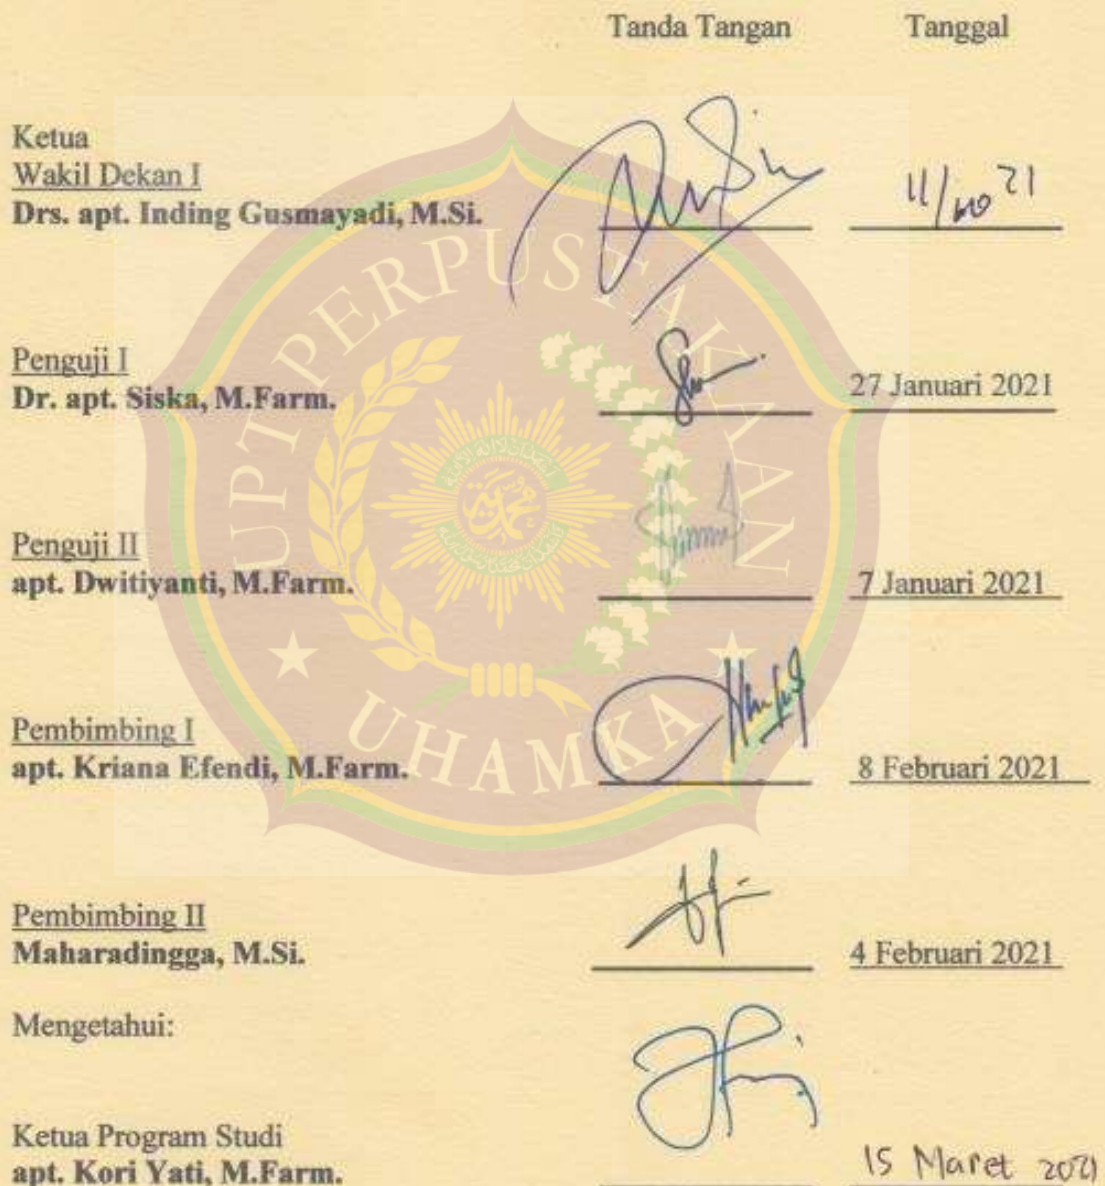 Tanda Tangan Tanggal
Ketua
Wakil Dekan I
Drs. apt. Inding Gusmayadi, M.Si.
Penguji I
Dr. apt. Siska, M.Farm. 27 Januari 2021
Penguji II
apt. Dwitiyanti, M.Farm. 7 Januari 2021
Pembimbing I
apt. Kriana Efendi, M.Farm. 8 Februari 2021
Pembimbing II
Maharadingga, M.Si. 4 Februari 2021
Mengetahui:
Ketua Program Studi
apt. Kori Yati, M.Farm. 15 Maret 2021
UPT PERPUSTAKAAN
UHAMKA